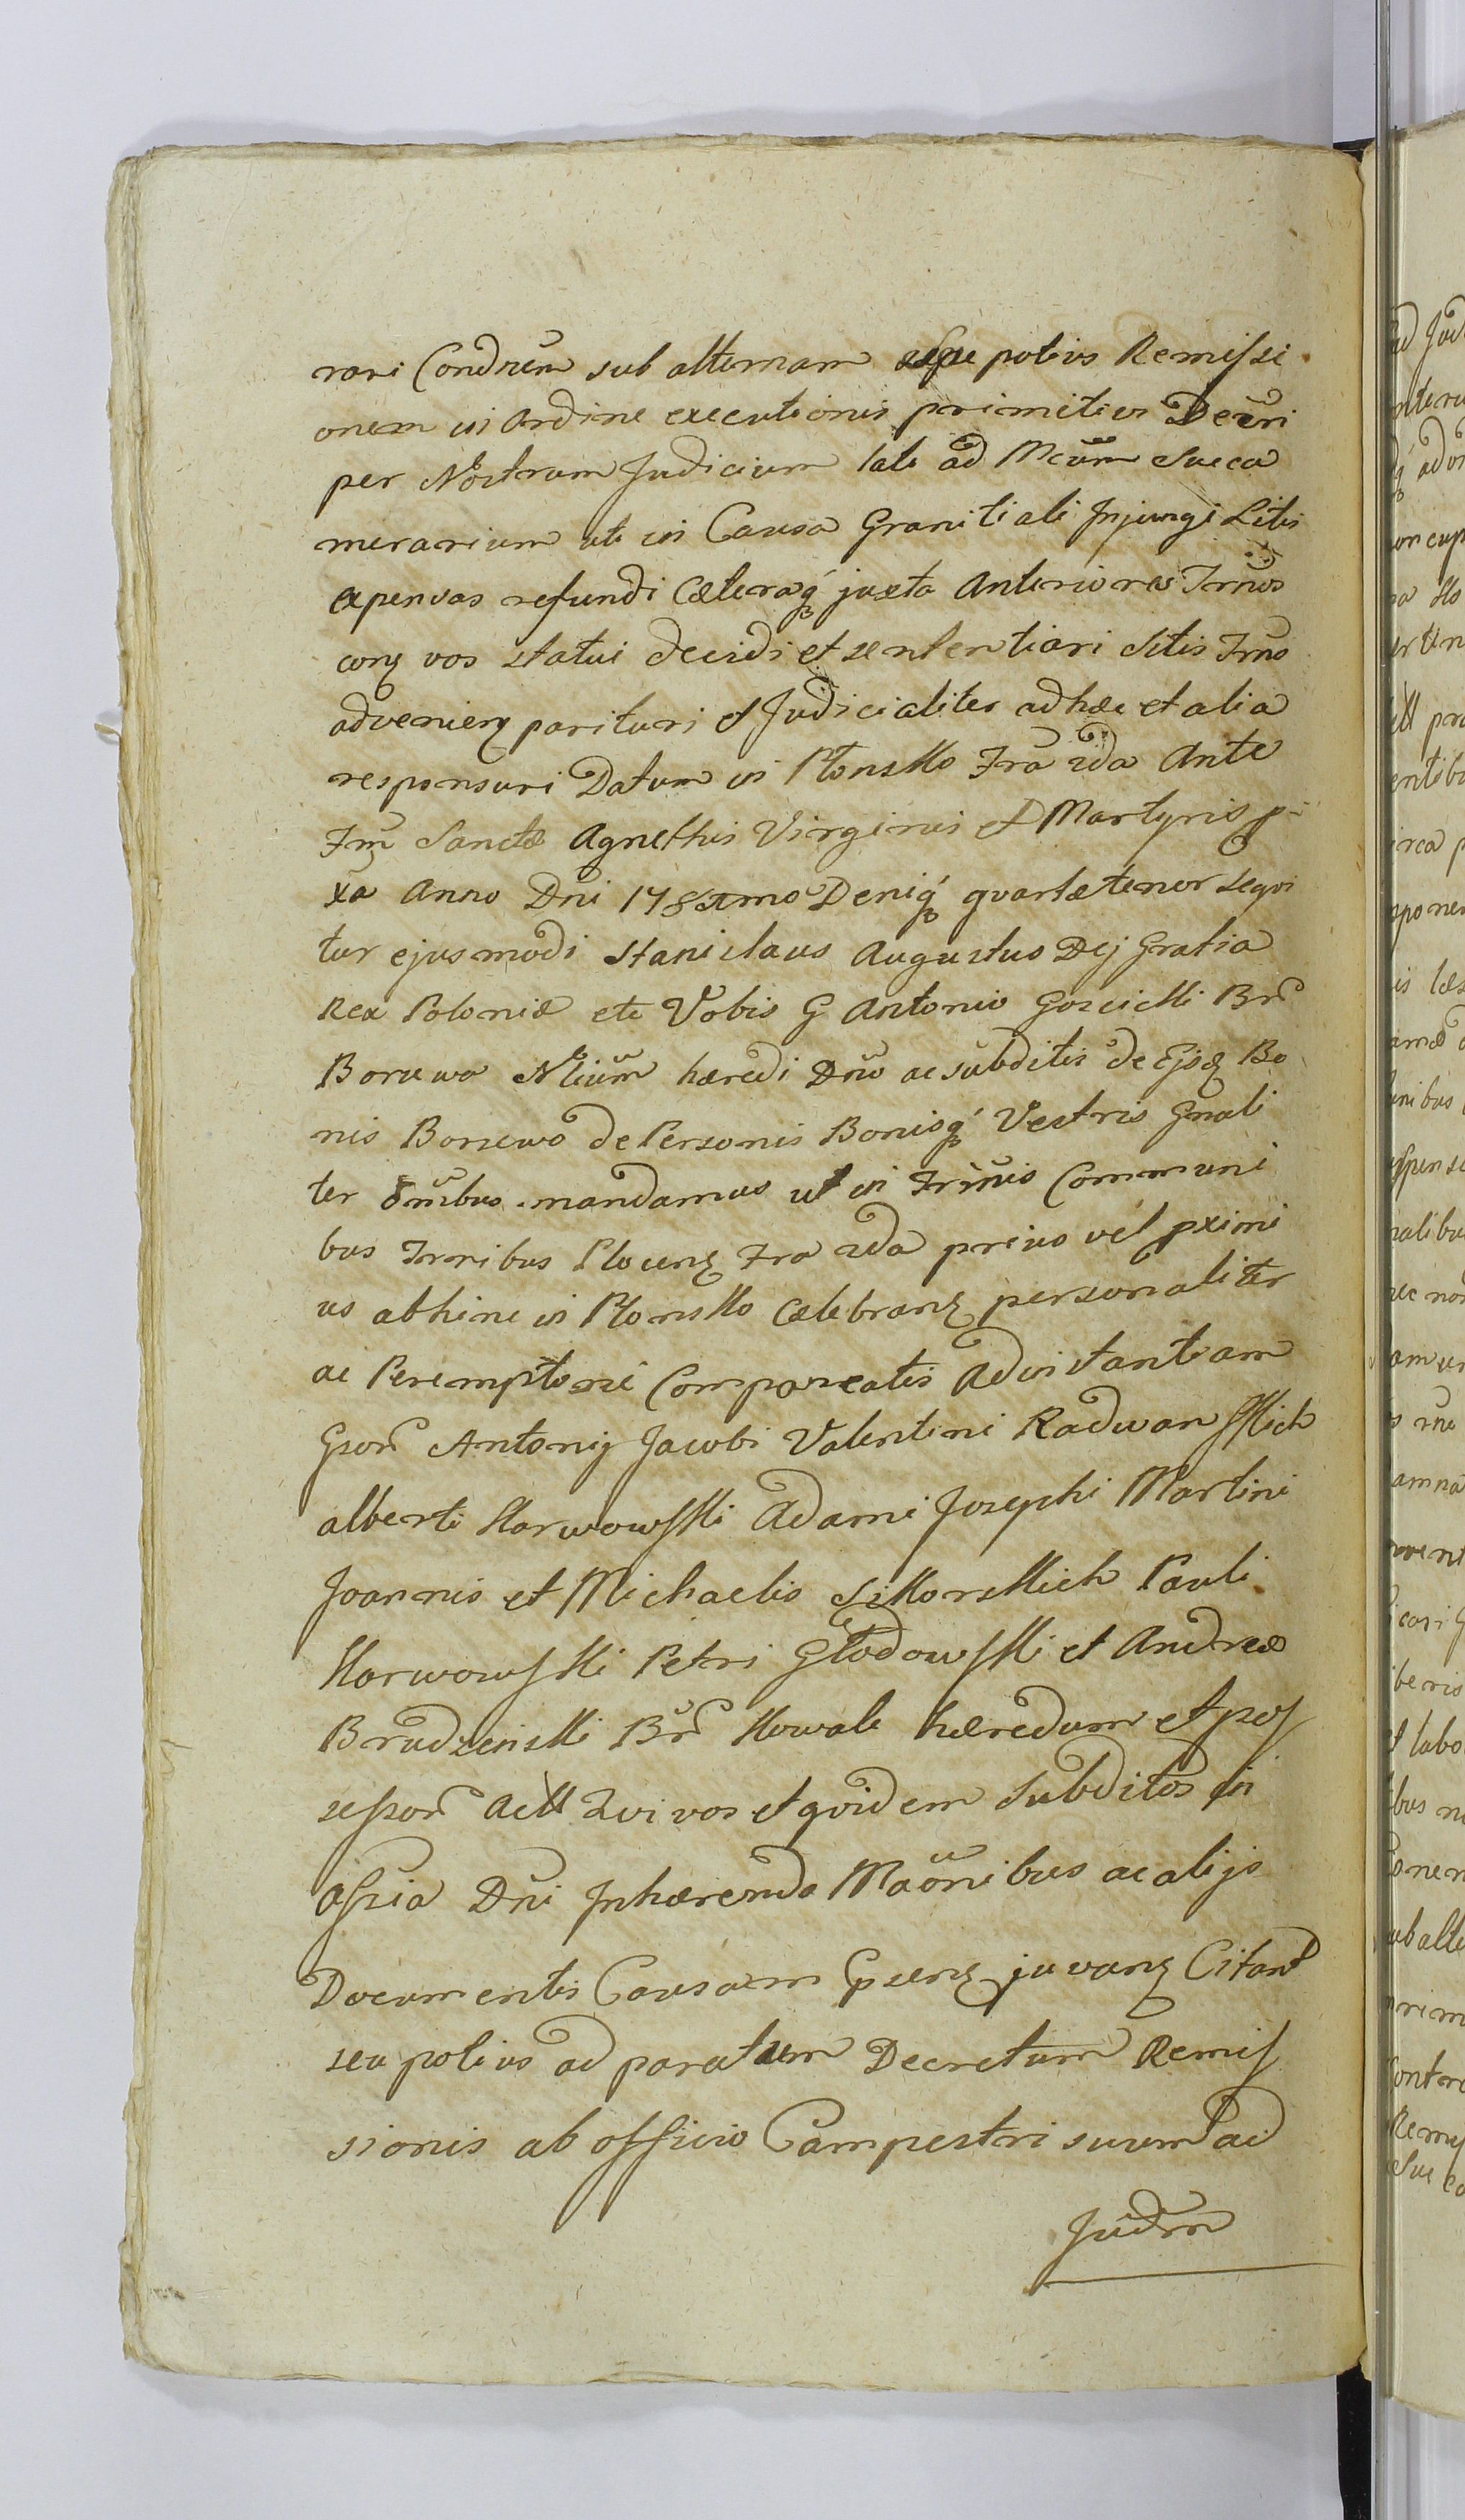 rari Condnem sub alternam sepe potius Remissi
onem in Ordine executionis primitivi Decri
per Nostrum Judicium lati ad Mcum Succa
merarium uti in Causa Granitiali Injungi Litis
expensas refundi Cæteraq́ juxta Anteriores Trnos
conz vos statui decidi et sententiari Sitis Trno
advenienz parituri et Judicialiter ad hæc et alia
responsuri Datum in Płonsko Fra 2da Ante
Fm Sanctæ Agnethis Virginis et Martyris p
xa Anno Dni 178 Deniq́ quartæ tenor sequi
tur ejusmodi Stanislaus Augustus Dej Gratia
Rex Poloniæ etc Vobis G Antonio Goscicki Br
Borzewo Nlium hæredi Dno ac subditis de Ejsdz Bo
nis Borzewo de Personis Bonisq́ Vestris Gnali
ter omibus mandamus ut in Trinis Communi
bus Trribus Plocenz Fra 2da prius vel pximi
us abhinc in Płonsko Celebranz personaliter
ac Peremptorie Compareatis Ad instantiam
Gsor Antonij Jacobi Valentini Radwanskich
alberti Karwowski Adami Josephi Martini
Joannis et Michaelis Sikorskich Pauli
Karwowski Petri Głodowski et Andreæ
Brudzenski Br Kowale hæredum et pos
sessor Actt Qui vos et quidem Subditos in
Assia Dni Inhærendo Maonibus ac alijs
Documentis Causam Gpsenz juvanz Citant
seu potius ad paratum Decretum Remis
sionis ab officio Campestri suum ad
Judm